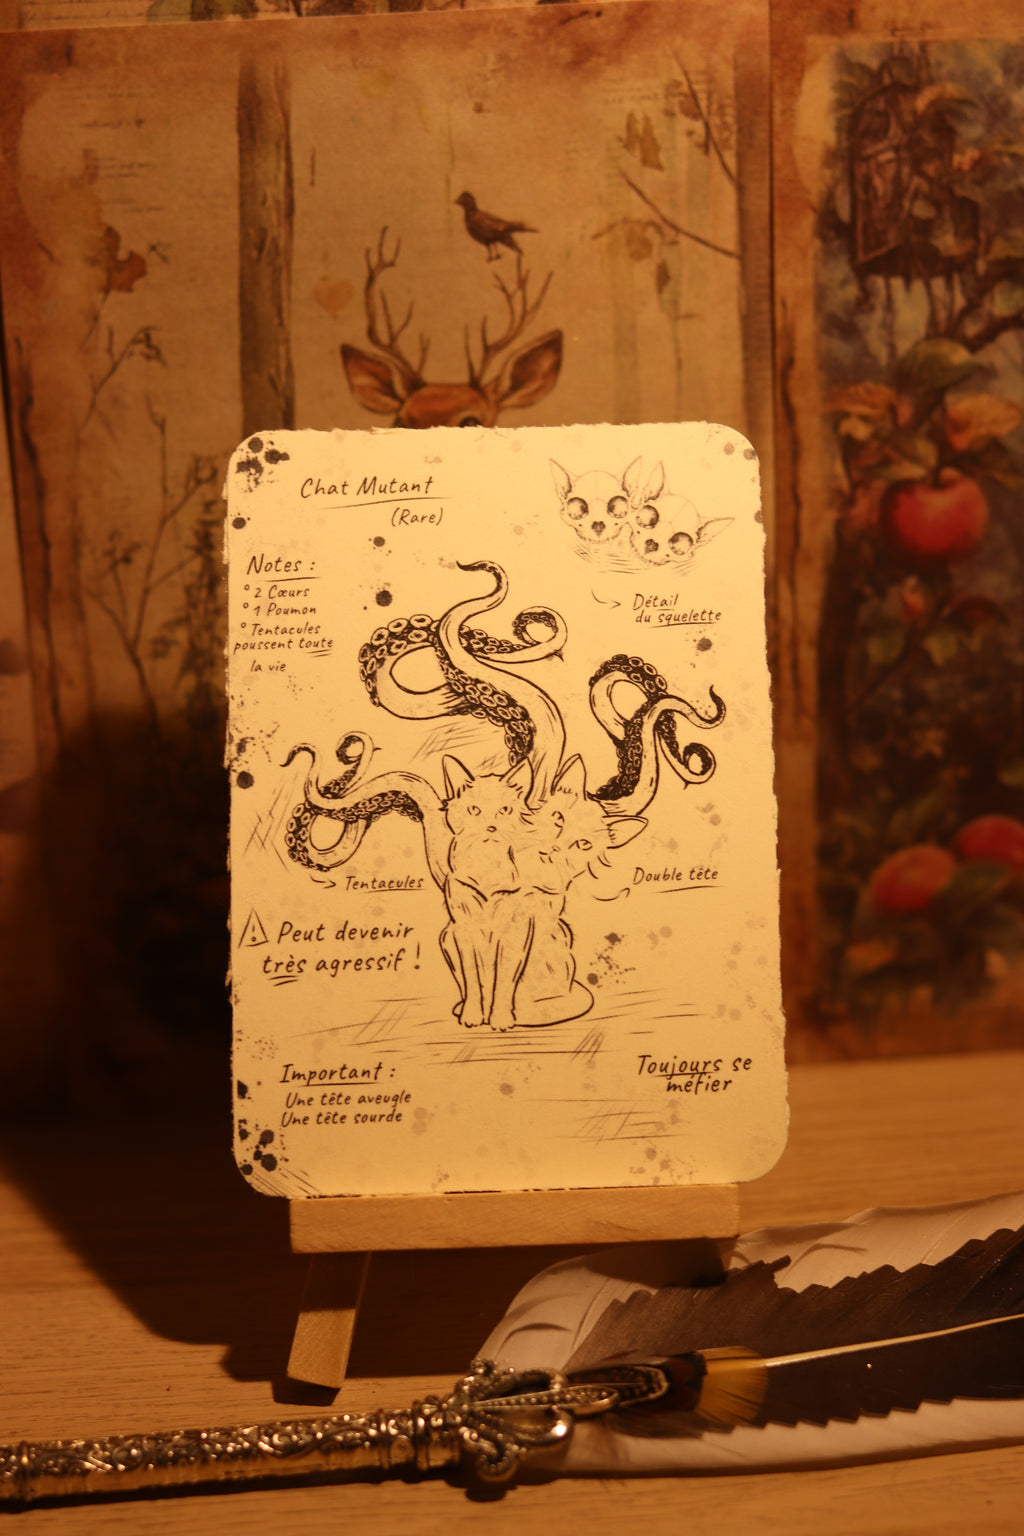 Chat Mutant
(Rare)
Notes :
° 2 Cœurs
° 1 Poumon
° Tentacules
poussent toute
la vie
Détail
du squelette
Tentacules
Double tête
Peut devenir
très agressif !
Important :
Une tête aveugle
Une tête sourde
Toujours se
méfier